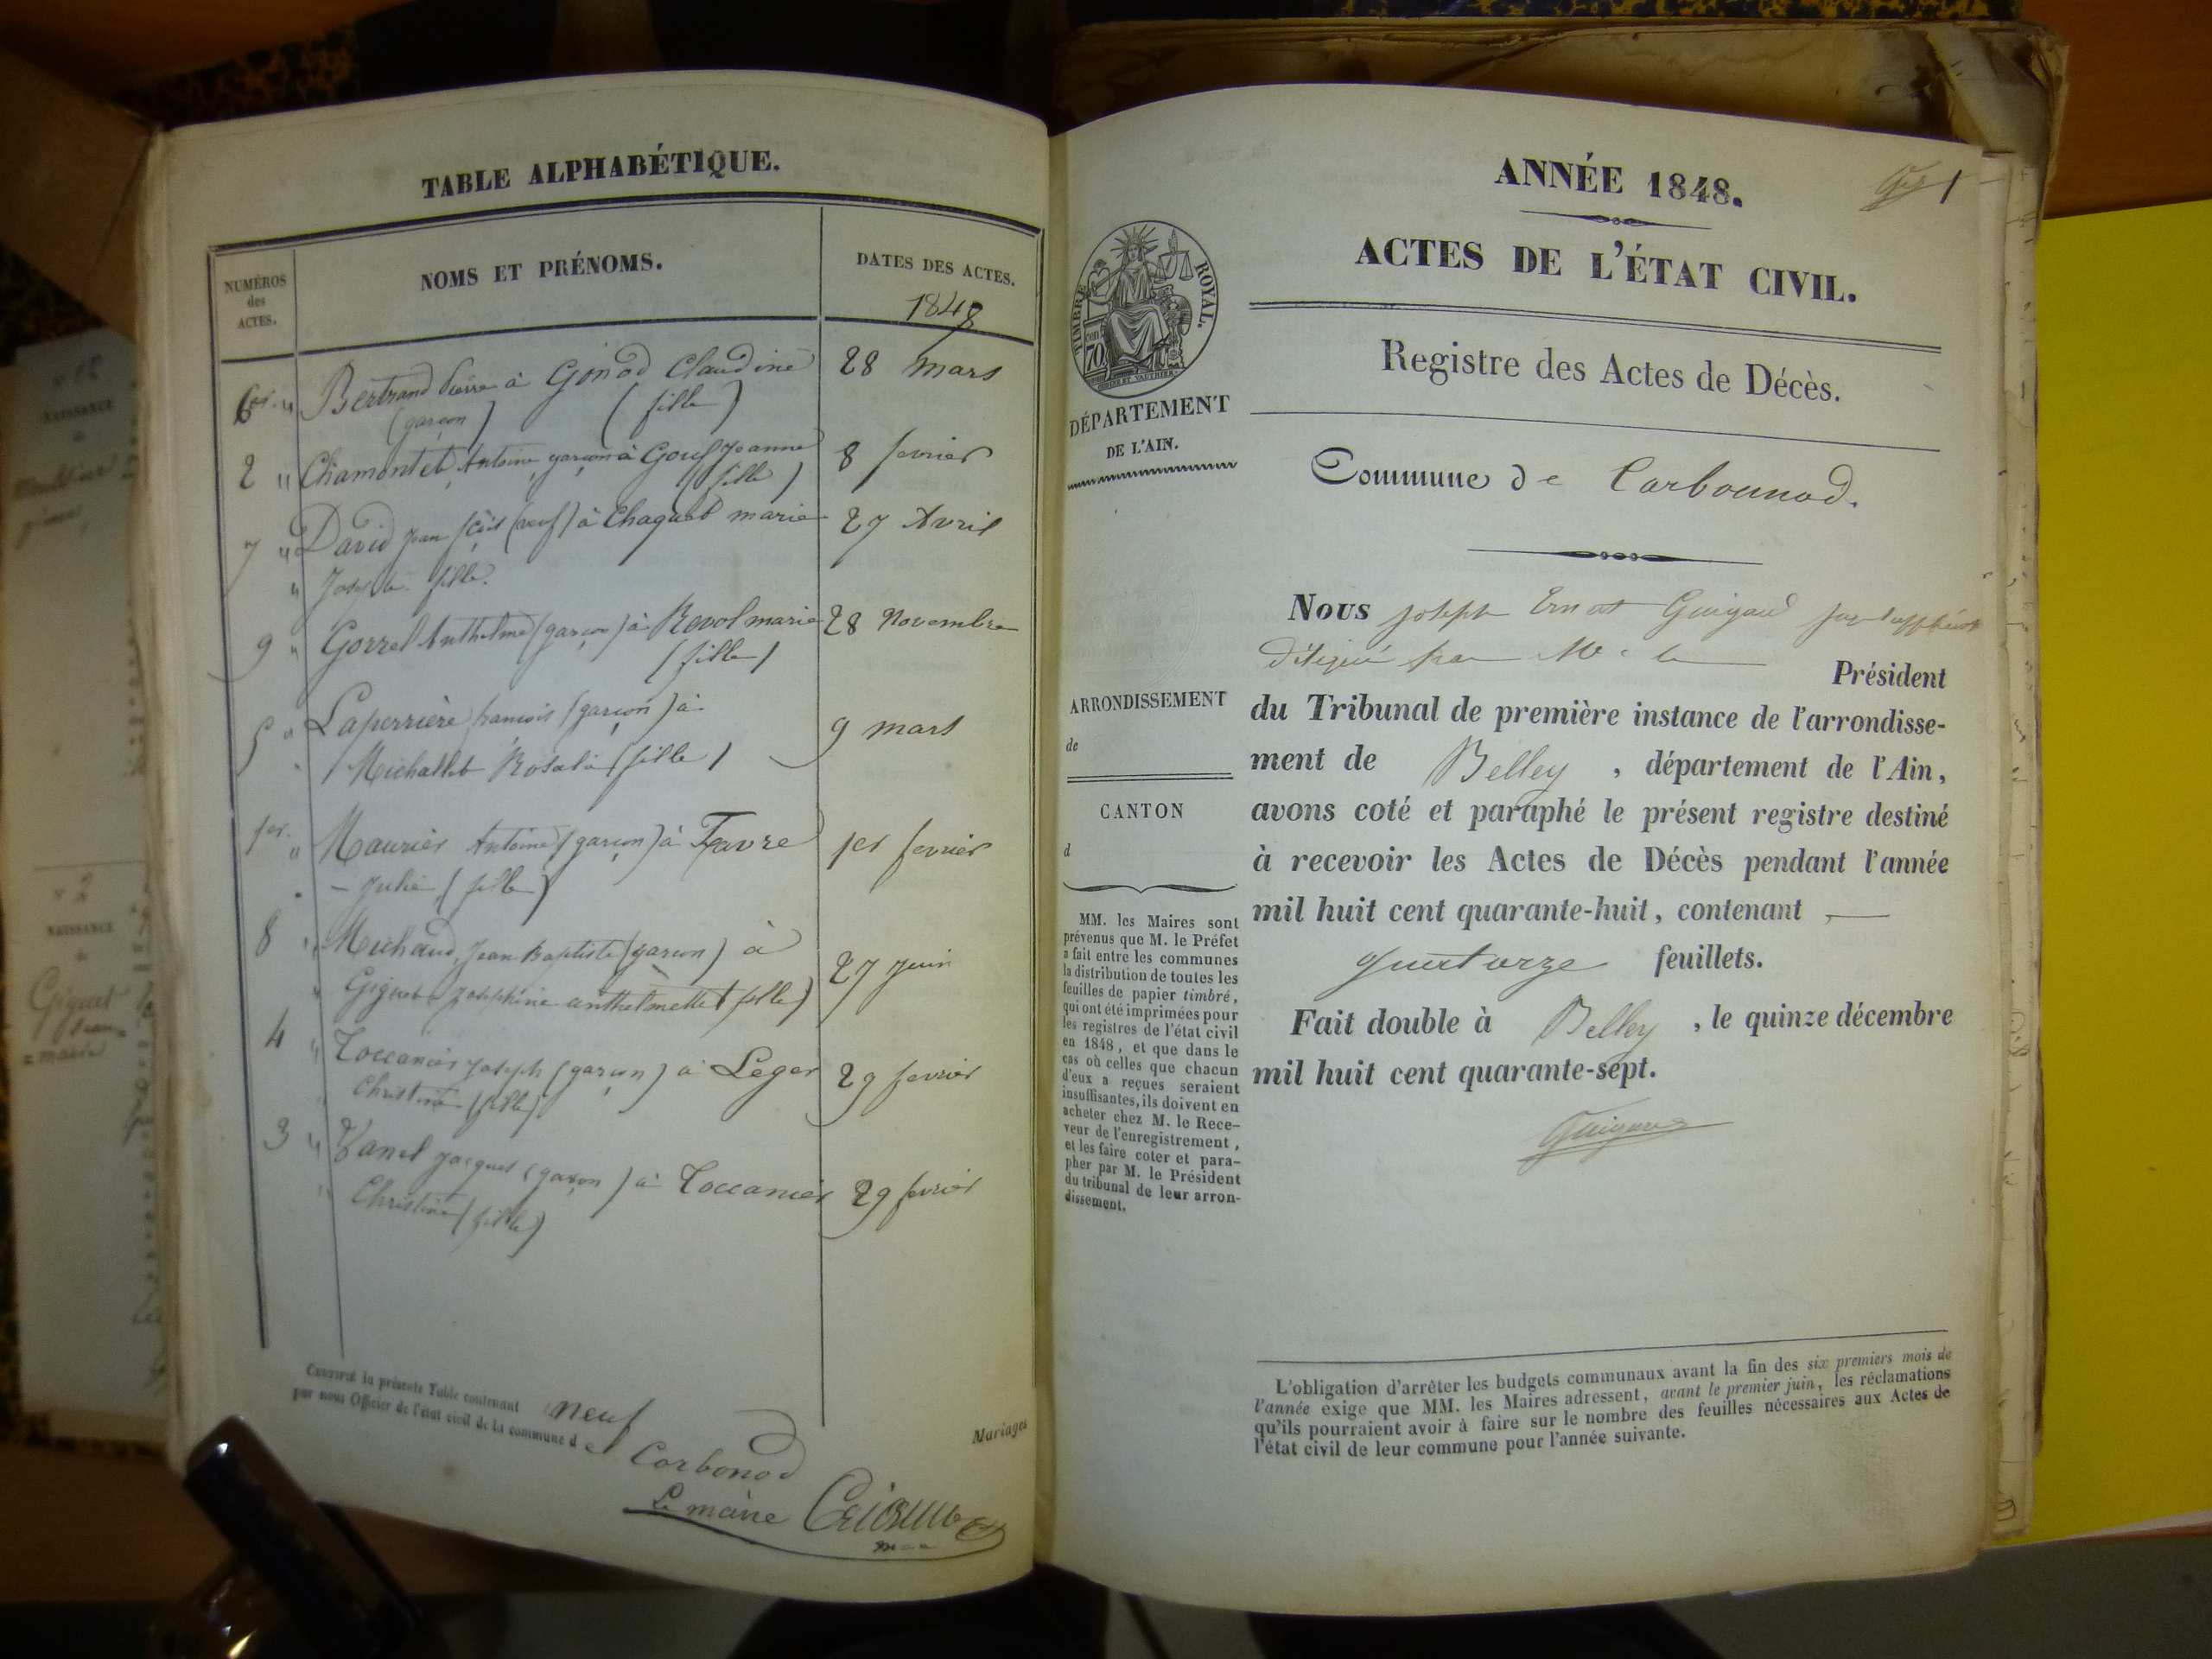 TABLE ALPHABÉTIQUE.
NUMÉROS
des
ACTES.
NOMS ET PRÉNOMS.
DATES DES ACTES.
1848
6 " Bertrand Pierre à Gonod Claudine 28 mars
(garçon) (fille)
2 " Chamontet, Antoine garçon à Jeanne 8 fevrier
(fille)
7 " David jean (veuf) à Chaquet marie 27 Avril
" fille.
9 " Gorrel Anthelme (garçon) à Revol marie 28 Novembre
(fille)
5 " Laperrière francois (garçon) à
Michallet Rosalie (fille) 9 mars
1er. " Maurier Antoine (garçon) à Favre 1er fevrier
- Julie (fille)
8 " Michaud, Jean Baptiste (garçon) à
Giguet Josephine anthelmette (fille) 27 Juin
4 " Toccanier Joseph (garçon) à Leger 29 fevrier
Christine (fille)
3 " Vanel Jacques (garçon) à Toccanier 29 fevrier
Christine (fille)
CERTIFIÉ la présente Table contenant neuf Mariages
par nous Officier de l'état civil de la commune de Corbonod
Le maire
N° 2
NAISSANCE
Giguet
ANNÉE 1848.
1
ACTES DE L'ÉTAT CIVIL.
TIMBRE ROYAL.
70
Registre des Actes de Décès.
DÉPARTEMENT
DE L'AIN.
Commune de Corbonnod.
ARRONDISSEMENT
de
CANTON
d
MM. les Maires sont
prévenus que M. le Préfet
a fait entre les communes
la distribution de toutes les
feuilles de papier timbré,
qui ont été imprimées pour
les registres de l'état civil
en 1848, et que dans le
cas où celles que chacun
d'eux a reçues seraient
insuffisantes, ils doivent en
acheter chez M. le Rece-
veur de l'enregistrement,
et les faire coter et para-
pher par M. le Président
du tribunal de leur arron-
dissement.
Nous joseph Ernest Guigard
par Mr. le Président
du Tribunal de première instance de l'arrondisse-
ment de Belley, département de l'Ain,
avons coté et paraphé le présent registre destiné
à recevoir les Actes de Décès pendant l'année
mil huit cent quarante-huit, contenant
quatorze feuillets.
Fait double à Belley, le quinze décembre
mil huit cent quarante-sept.
L'obligation d'arrêter les budgets communaux avant la fin des six premiers mois de
l'année exige que MM. les Maires adressent, avant le premier juin, les réclamations
qu'ils pourraient avoir à faire sur le nombre des feuilles nécessaires aux Actes de
l'état civil de leur commune pour l'année suivante.